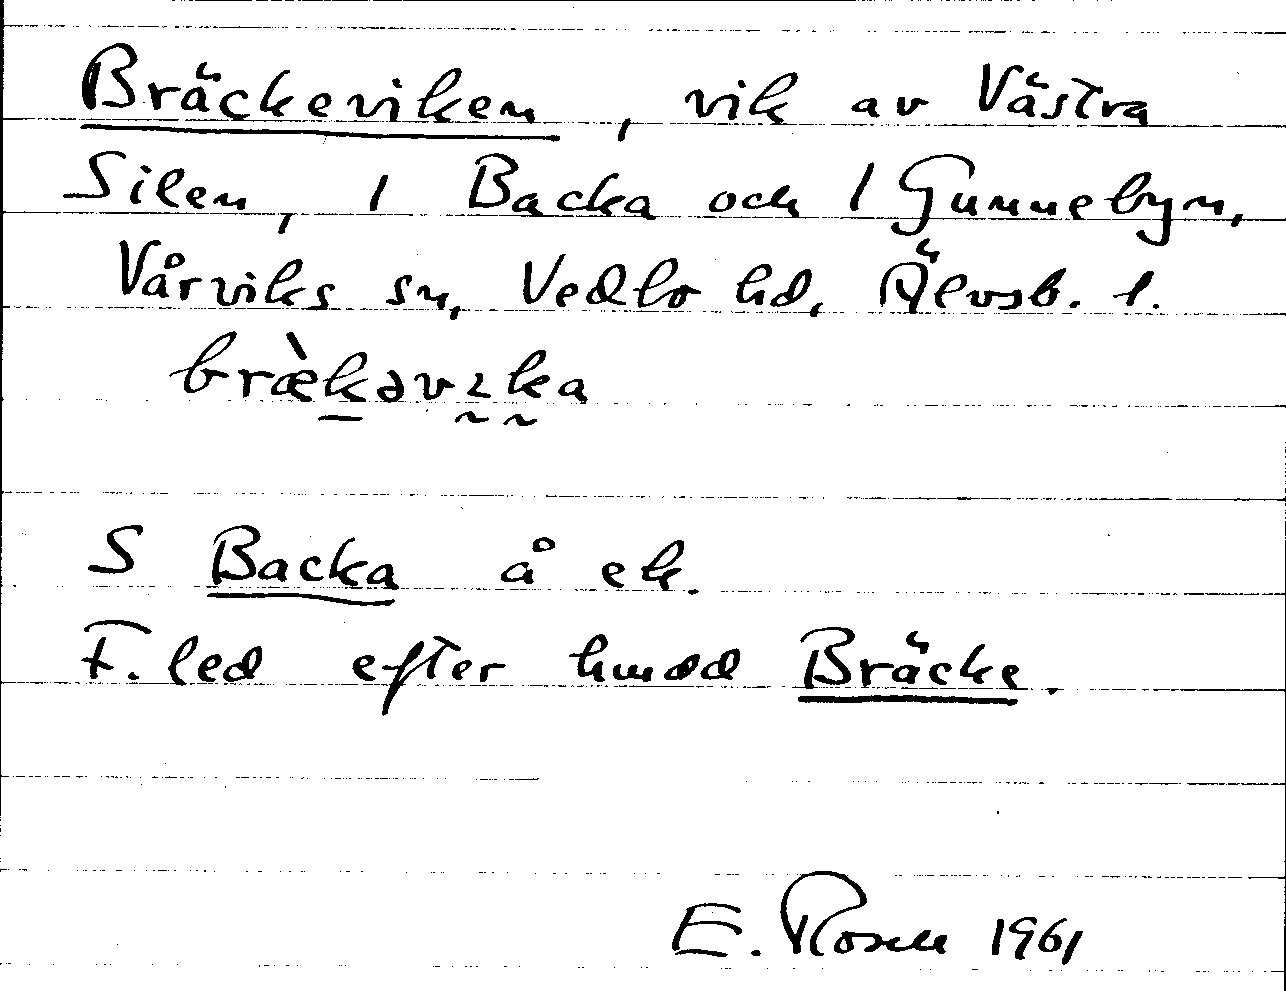 Bräckeviken, vik av Västra
Silen, 1 Backa och 1 Gunnebyn,
Vårviks sn, Vedbo hd, Älvsb. l.
bræ̀kəvɩka
S Backa å ek.
F. led efter hmdd Bräcke.
E. Rosell 1961